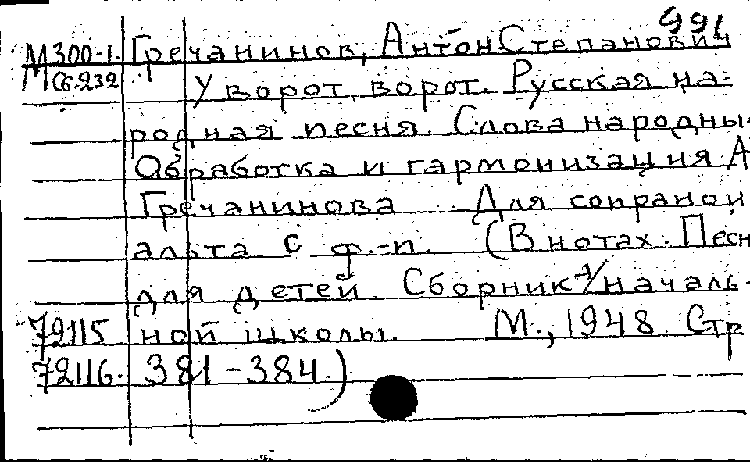 991
М300-1. Гречанинов, Антон Степанович
М Сб.232 У ворот, ворот. Русская на-
родная песня. Слова народны
Обработка и гармонизация А
Гречанинова. Для сопрано и
альта с ф.-п. (В нотах: Песн
для детей. Сборник д/началь-
72115 ной школы. М., 1948. Стр
72116. 381-384.)